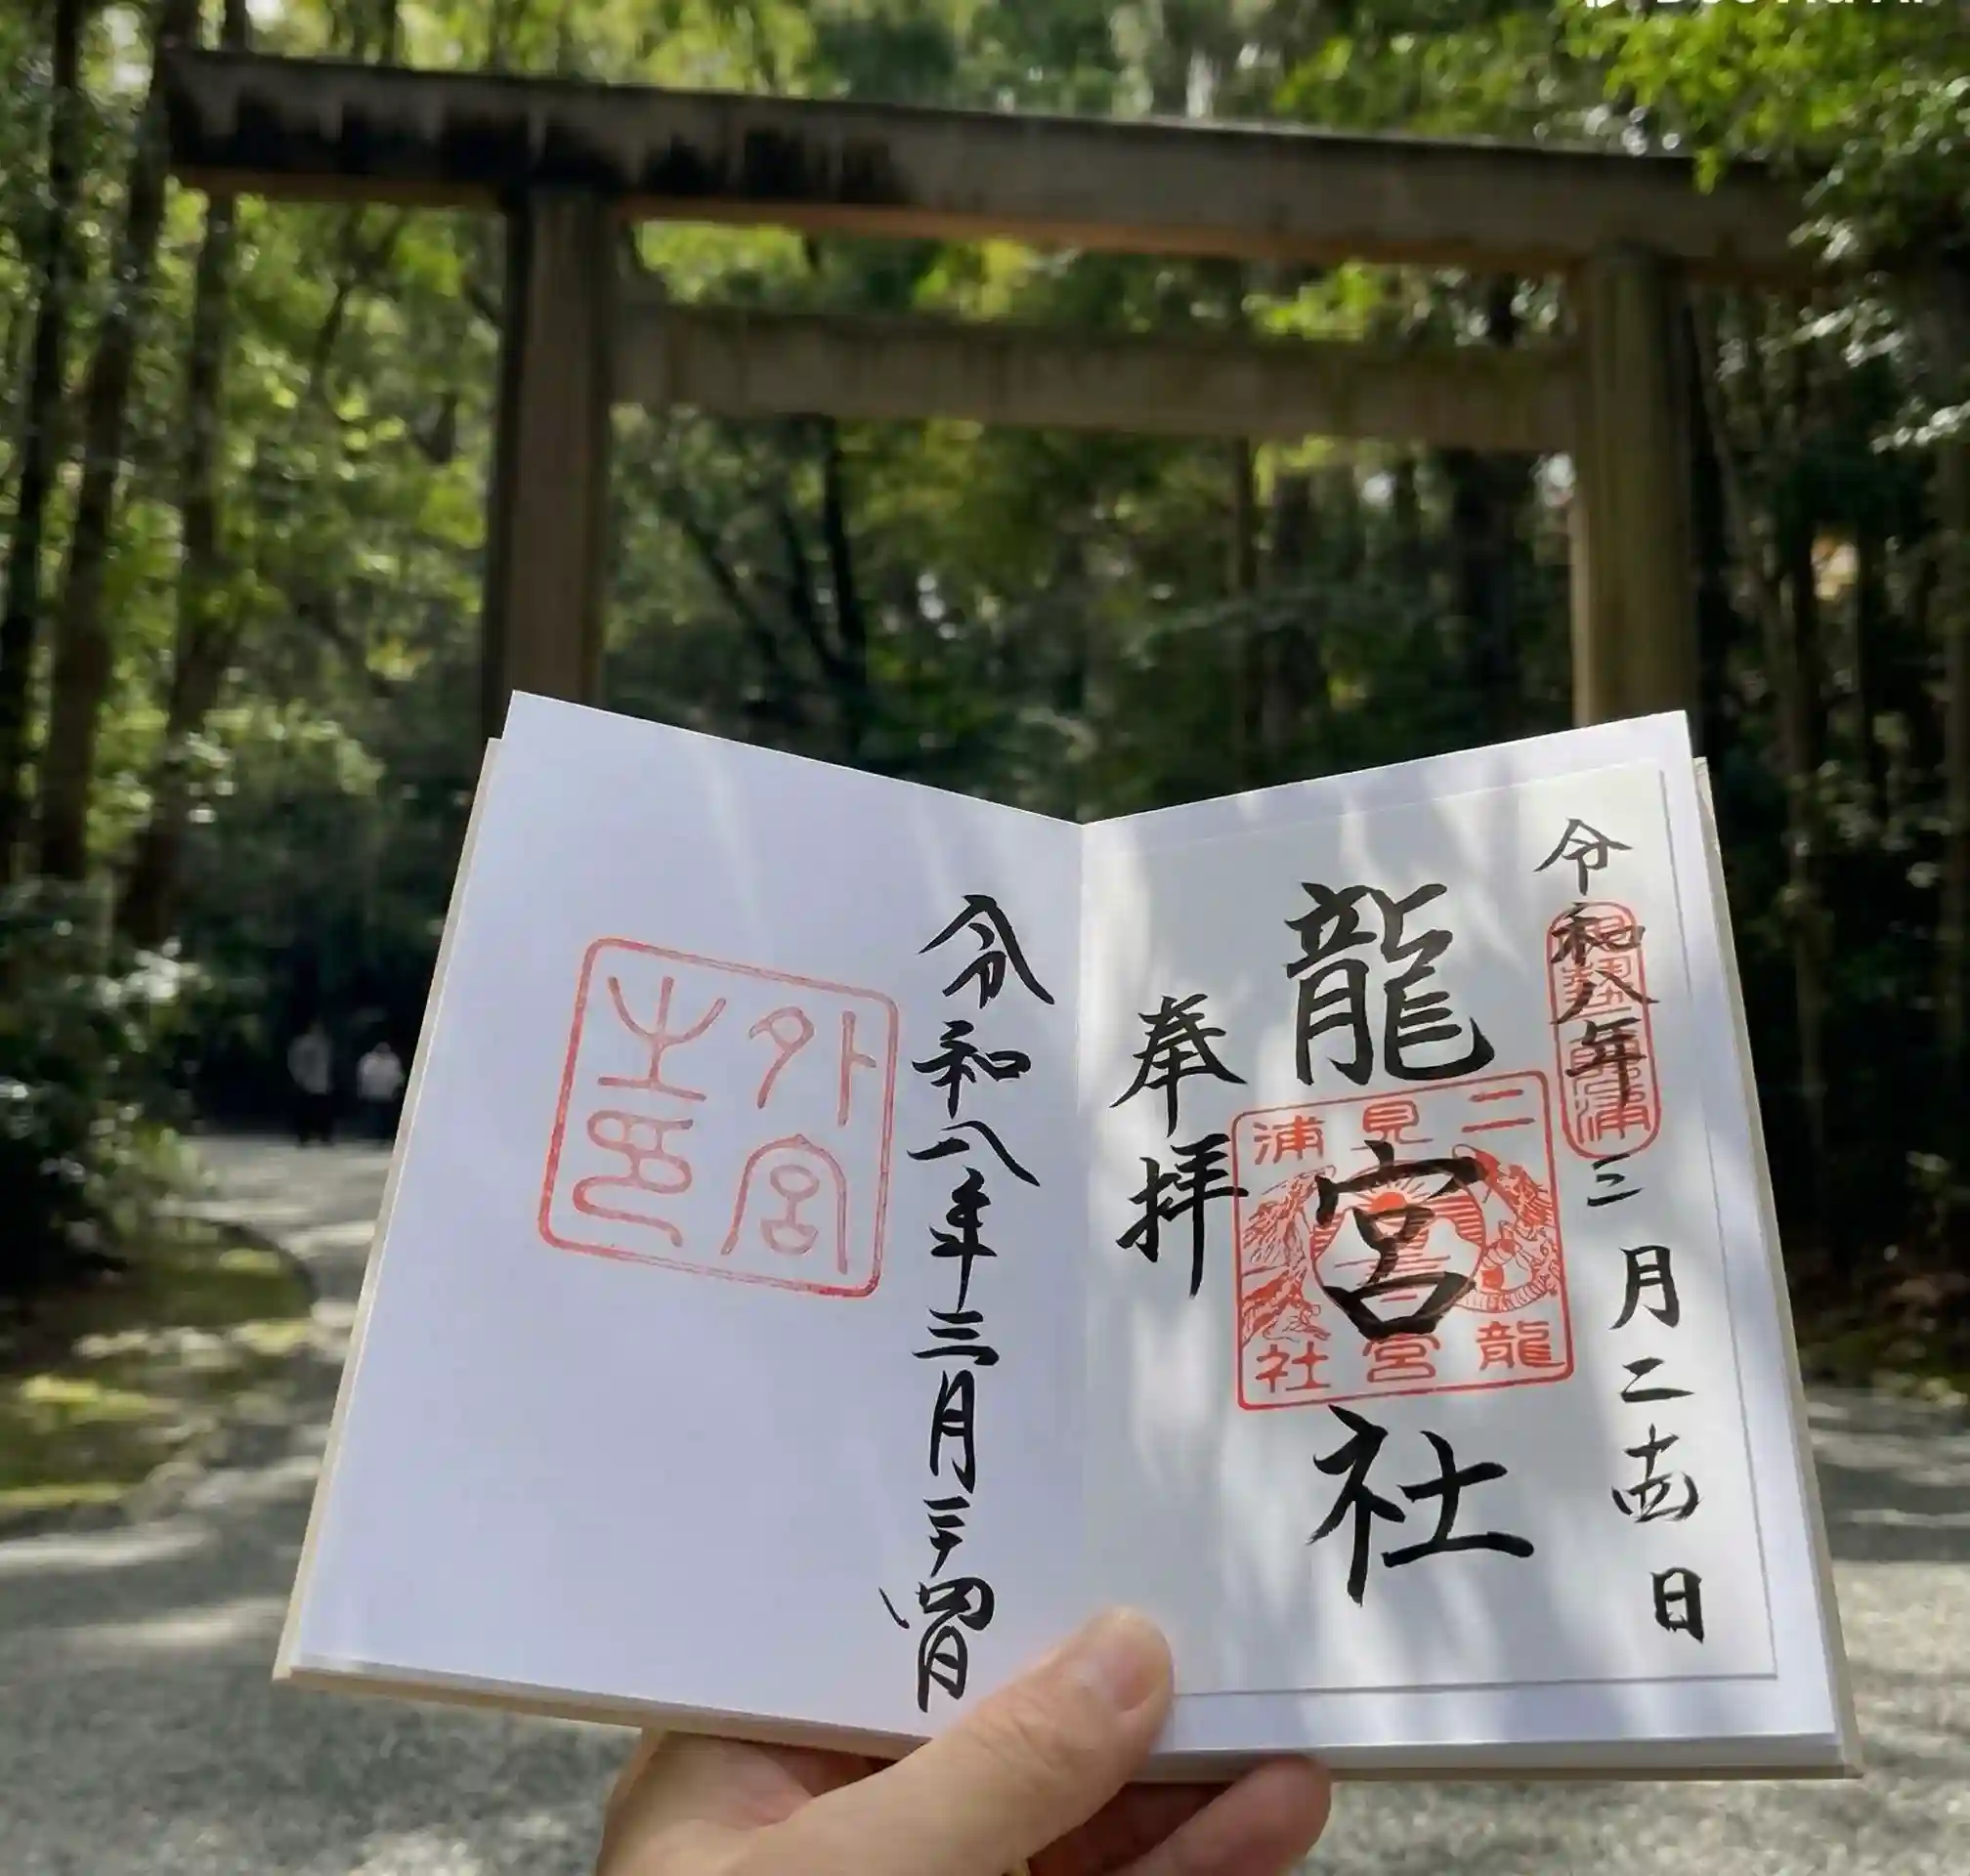 令和八年三月二十四日
龍宮社
二見浦
龍宮社
奉拝
令和八年三月二十四日
外宮
之印